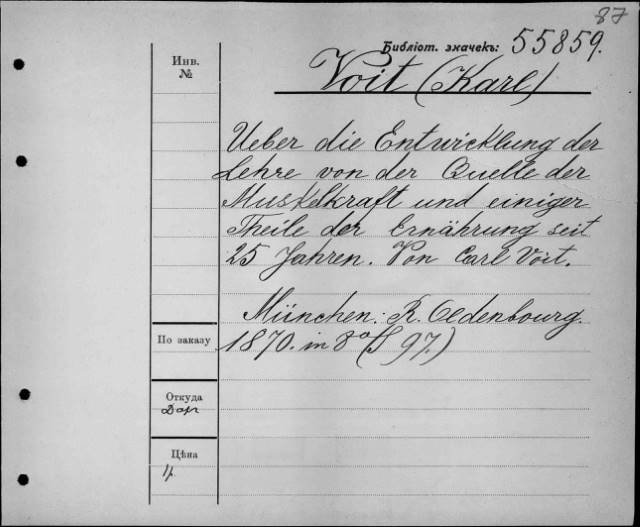 87
Библіот. значекъ: 55859.
Инв.
№
Voit (Karl)
Ueber die Entwicklung der
Lehre von der Quelle der
Muskelkraft und einiger
Theile der Ernährung seit
25 Jahren. Von Carl Voit.
München: R. Oldenbourg.
По заказу
1870. in 8° (S 97.)
Откуда
Дар
Цѣна